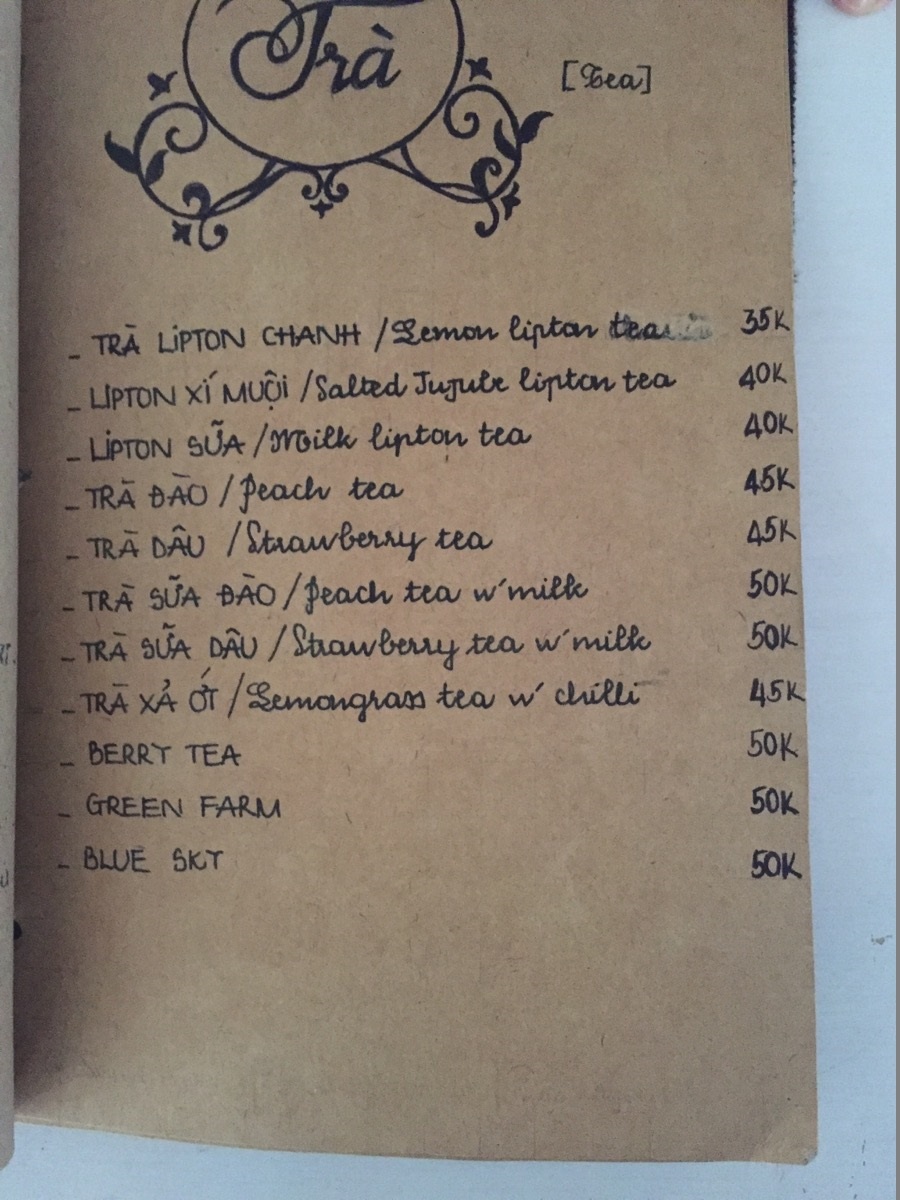 Trà
[Tea]
- TRÀ LIPTON CHANH / Lemon lipton tea 35K
- LIPTON XÍ MUỘI / Salted Jujube lipton tea 40K
- LIPTON SỮA / Milk lipton tea 40K
- TRÀ ĐÀO / Peach tea 45K
- TRÀ DÂU / Strawberry tea 45K
- TRÀ SỮA ĐÀO / Peach tea w' milk 50K
- TRÀ SỮA DÂU / Strawberry tea w' milk 50K
- TRÀ XẢ ỚT / Lemongrass tea w' chilli 45K
- BERRY TEA 50K
- GREEN FARM 50K
- BLUE SKY 50K